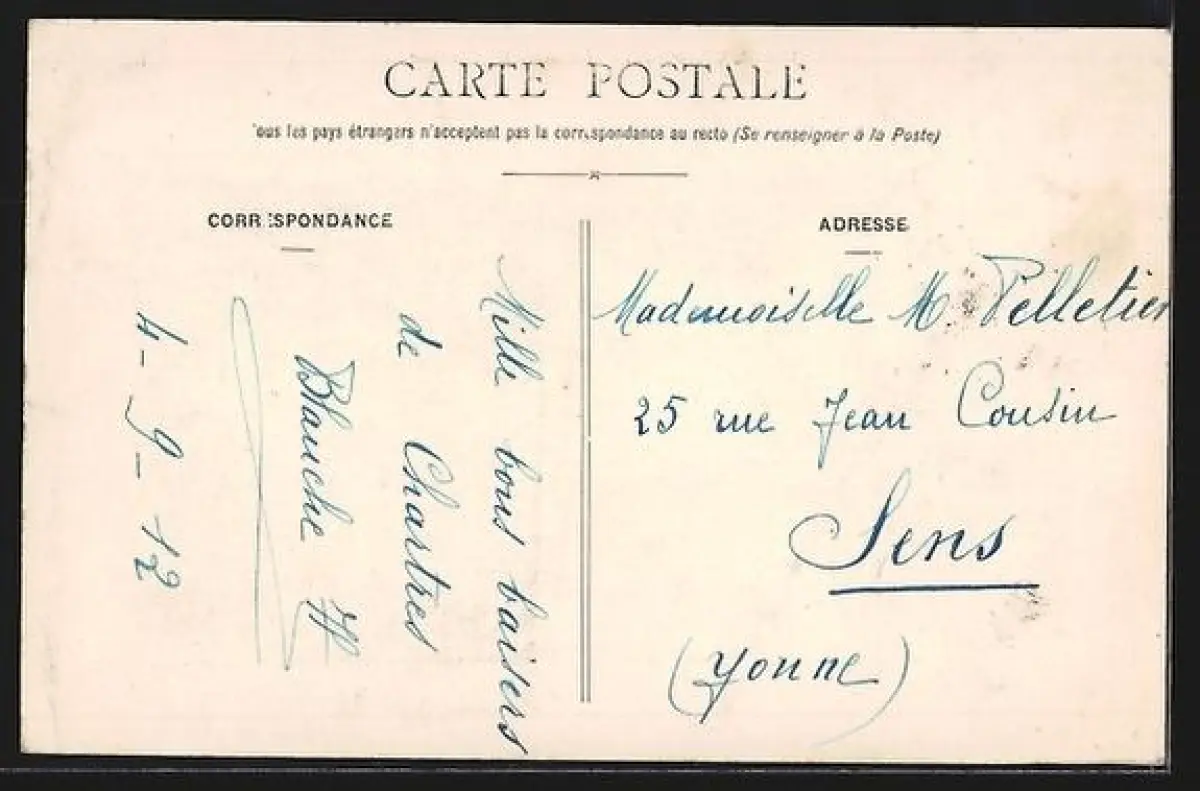 CARTE POSTALE
Tous les pays étrangers n'acceptent pas la correspondance au recto (Se renseigner à la Poste)
CORRESPONDANCE
Mille bons baisers
de Chartres
Blanche H
4-9-12
ADRESSE
Mademoiselle M Pelletier
25 rue Jean Cousin
Sens
(Yonne)